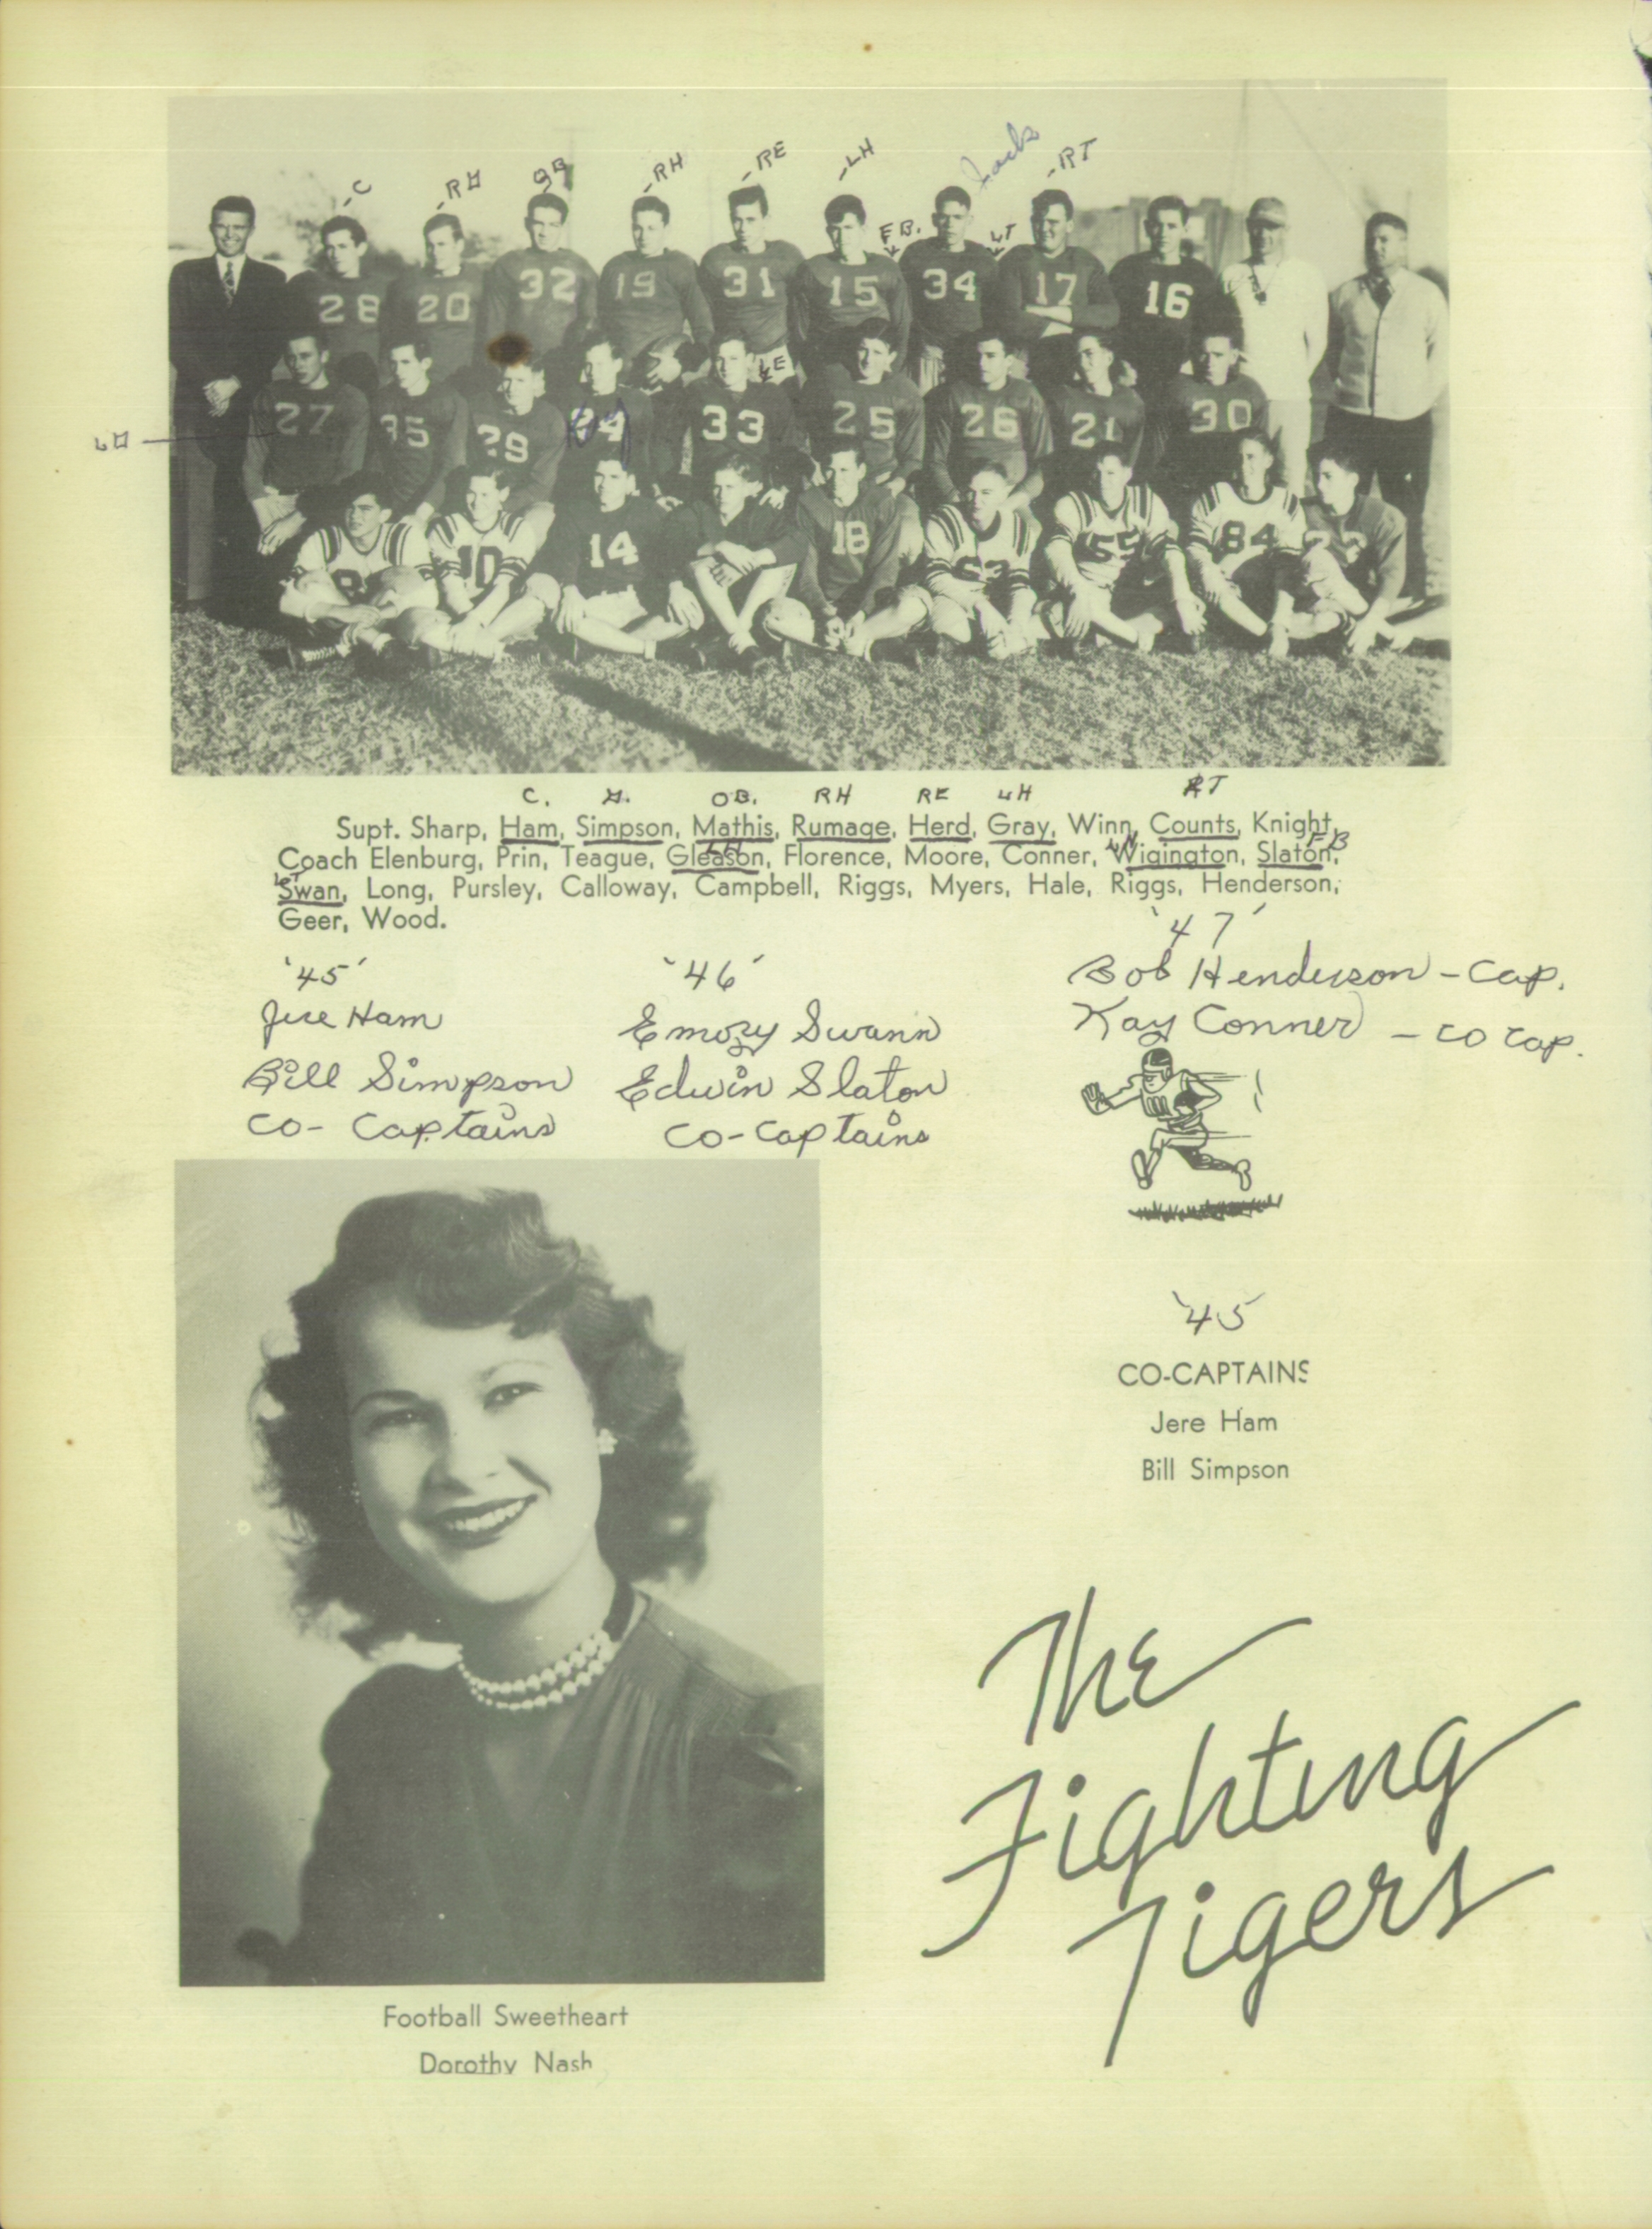 Jack
-C -RG QB -RH -RE -LH -RT
FB. LT
28 20 32 19 31 15 34 17 16
LE
LG 27 35 29 Ray 33 25 26 21 30
10 14 18 55 84
C. G. QB. RH RE LH RT
Supt. Sharp, Ham, Simpson, Mathis, Rumage, Herd, Gray, Winn, Counts, Knight,
FB
Coach Elenburg, Prin, Teague, Gleason, Florence, Moore, Conner, Wigington, Slaton,
LT
Swan, Long, Pursley, Calloway, Campbell, Riggs, Myers, Hale, Riggs, Henderson,
Geer, Wood.
'45'
Jere Ham
Bill Simpson
Co-Captains
'46'
Emory Swann
Edwin Slaton
Co-Captains
'47'
Bob Henderson - Cap.
Kay Conner - Co Cap.
'45
CO-CAPTAINS
Jere Ham
Bill Simpson
The
Fighting
Tigers
Football Sweetheart
Dorothy Nash